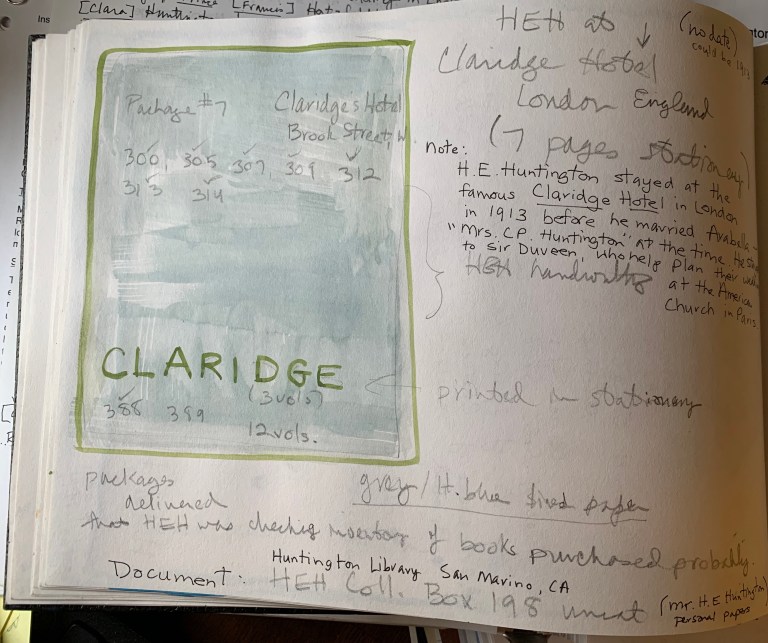 [Clara] Huntin
[Francis]
Ins
HEH at
(no date)
could be 1913
Claridge Hotel
London England
(7 pages stationery)
Package #7
Claridge's Hotel
Brook Street, W.
300, 305 307, 309 312
313 314
note:
H.E. Huntington stayed at the
famous Claridge Hotel in London
in 1913 before he married Arabella
"Mrs. C.P. Huntington" at the time
to Sir Duveen, who help plan their
HEH handwriting
at the America
Church in Paris
CLARIDGE
388 389
(3 vols)
12 vols.
printed in stationery
packages
delivered
gray / lt. blue lined paper
that HEH was checking inventory of books purchased probably.
Document: Huntington Library San Marino, CA
HEH Coll. Box 198 uncat
(Mr. H.E Huntington)
personal papers